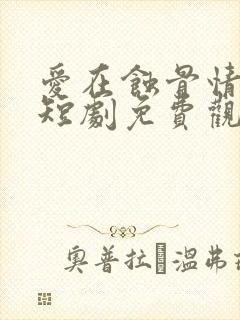 愛在蝕骨情
短劇免費觀
奧普拉 溫弗